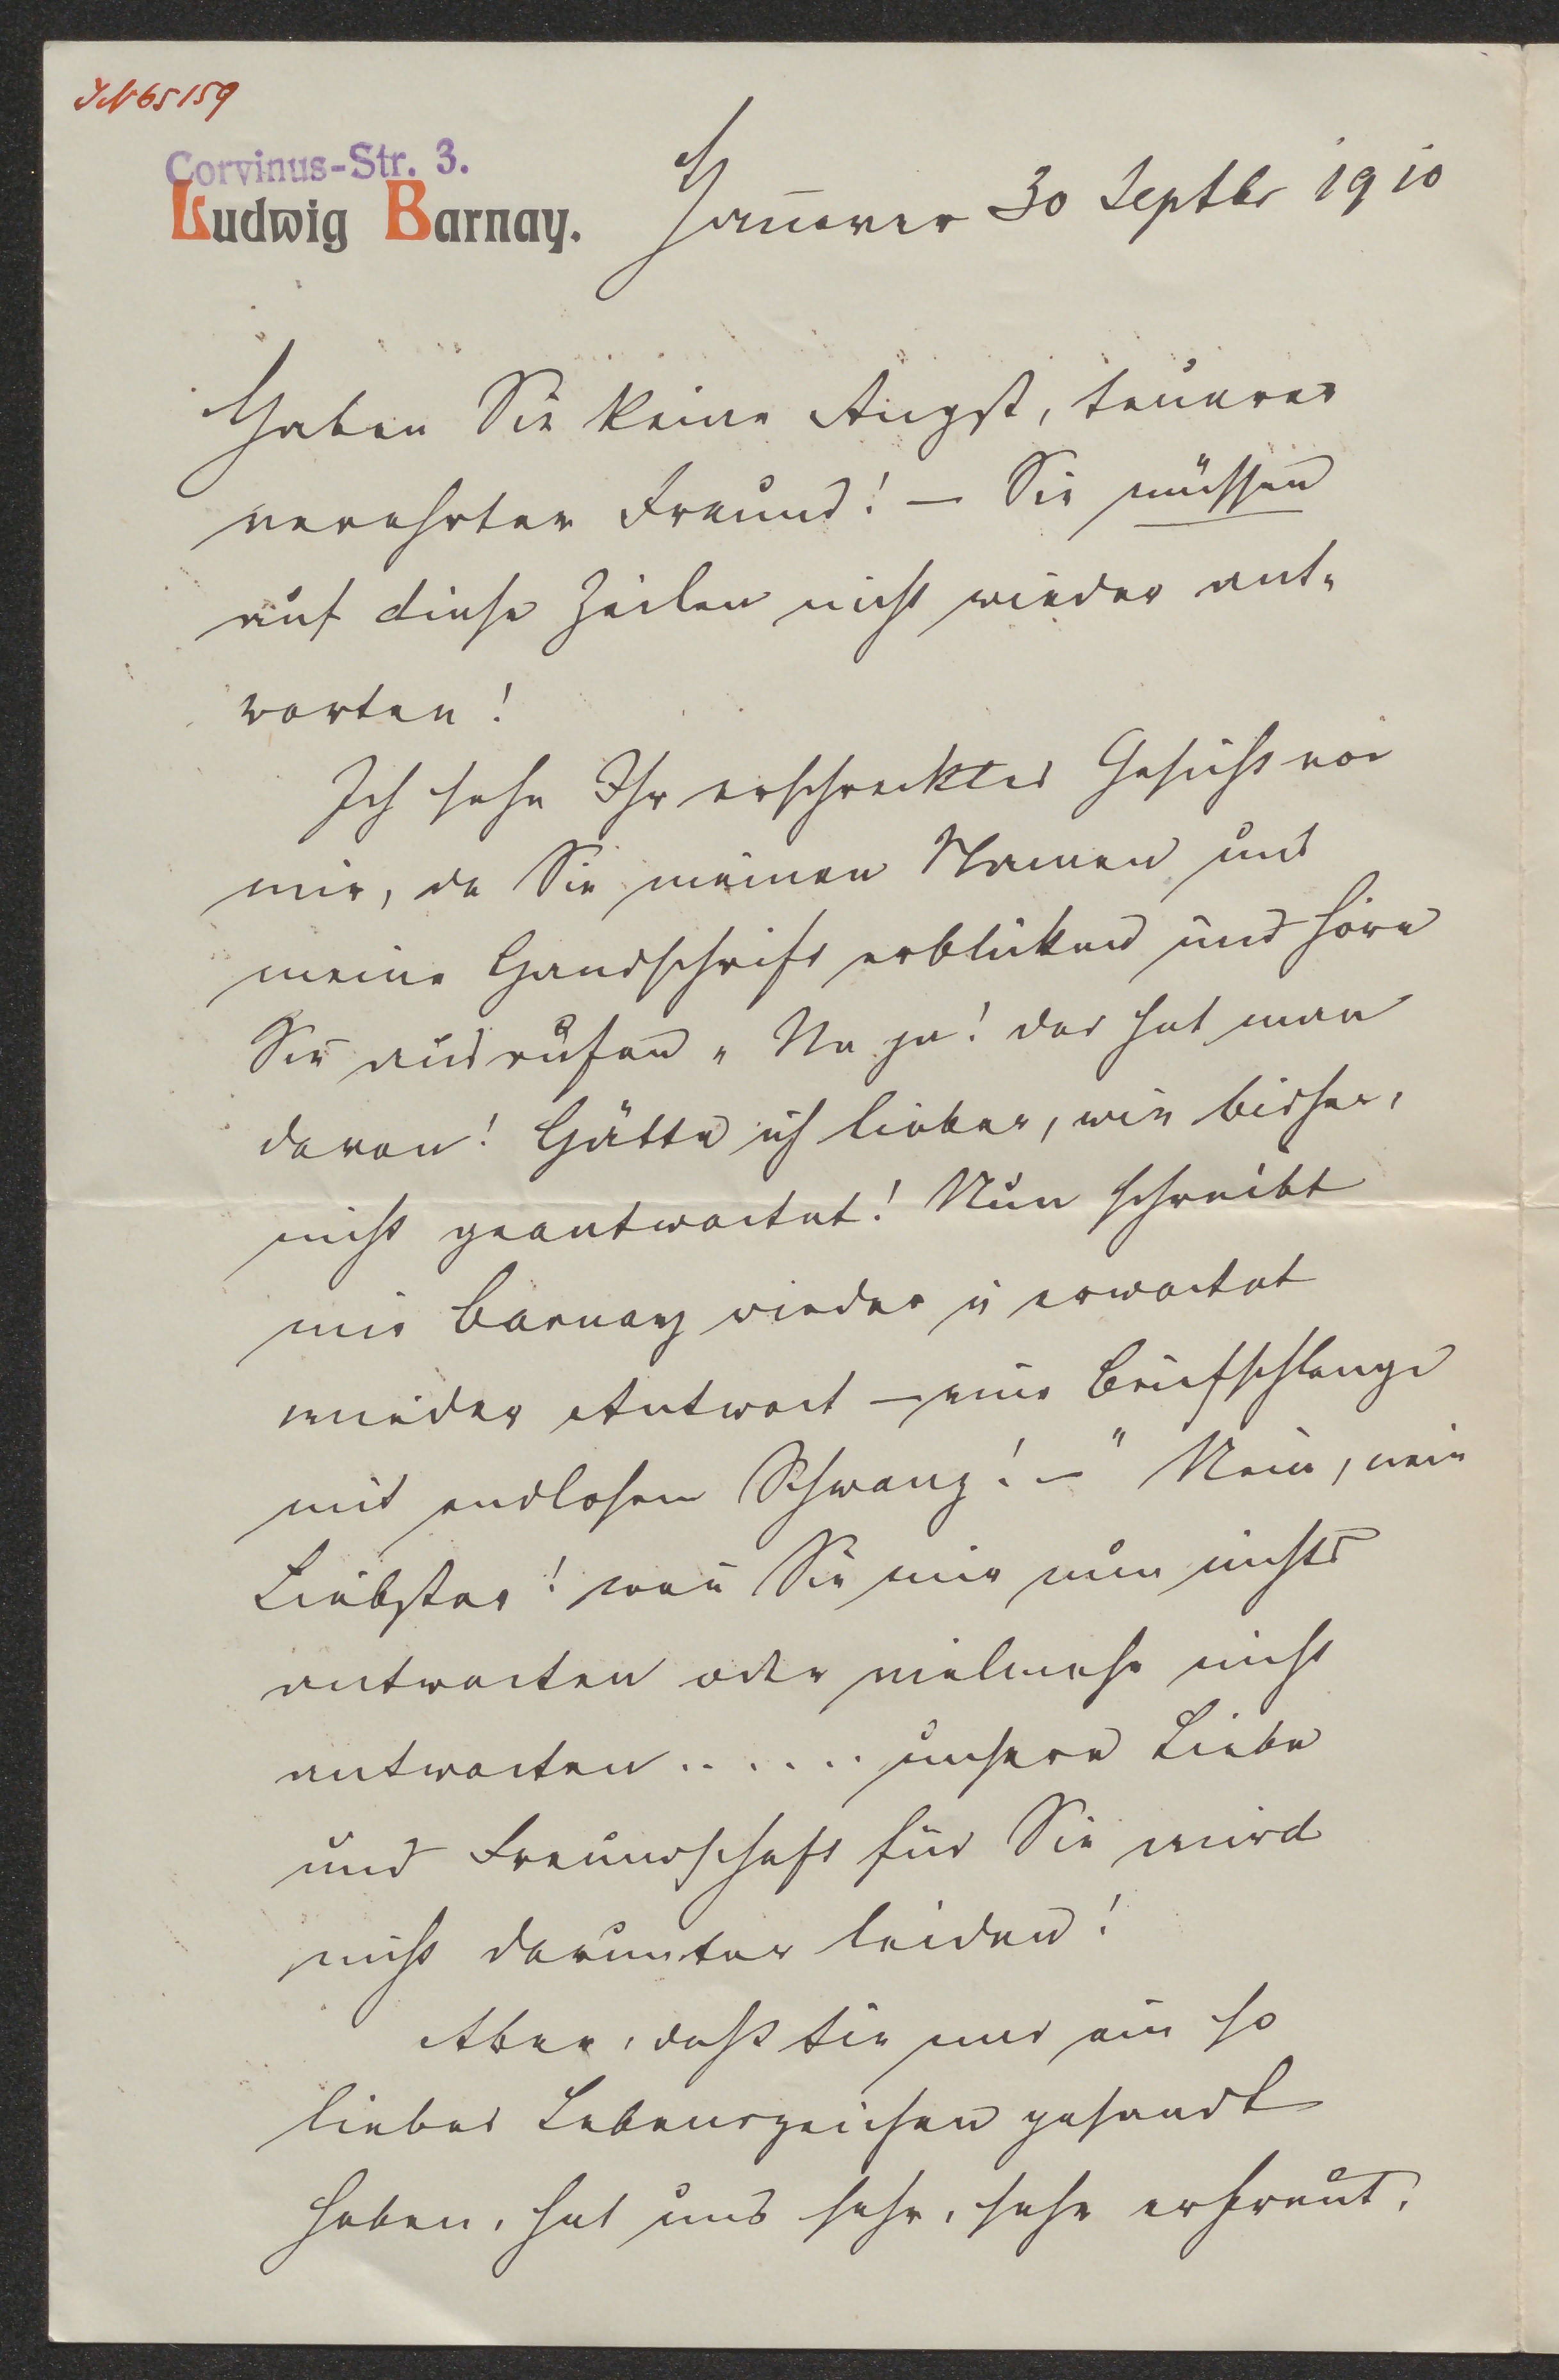 JN 65159
Corvinus-Str. 3.
Ludwig Barnay.
Han̄over 30 Septbr 1910
Haben Sie keine Angst, teurer
verehrter Freund! – Sie müssen
auf diese Zeilen nicht wieder ant-
worten!
Ich sehe Ihr erschrecktes Gesicht vor
mir, da Sie meinen Namen und
meine Handschrift erblicken und höre
Sie ausrufen „Na ja! das hat man
davon! Hätte ich lieber, wie bisher,
nicht geantwortet! Nun schreibt
mir Barnay wieder u erwartet
wieder Antwort – eine Briefschlange
mit endlosem Schwanz! –" Nein, nein
Liebster! wen̄ Sie mir nun nichts
antworten oder vielmehr nicht
antworten ...... unsere Liebe
und Freundschaft für Sie wird
nicht darunter leiden!
Aber, daß Sie uns ein so
liebes Lebenszeichen gesandt
haben, hat uns sehr, sehr erfreut.